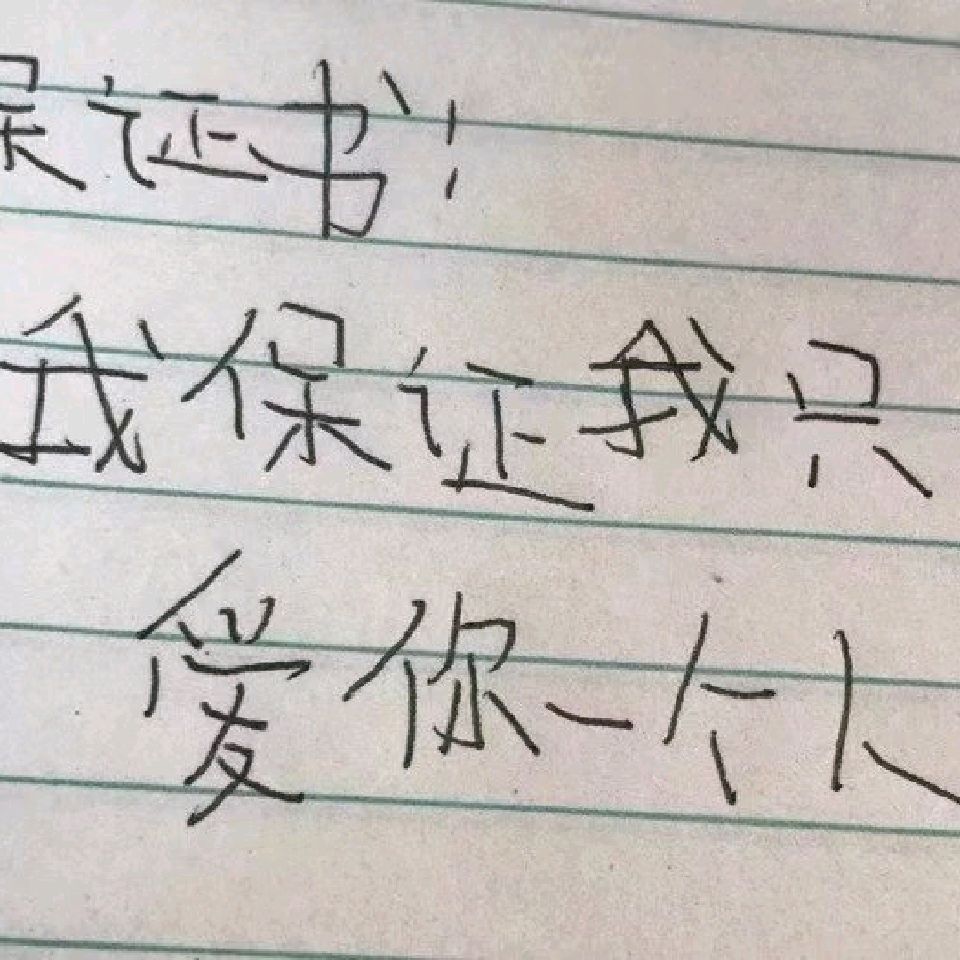 保证书:
我保证我只
爱你一个人